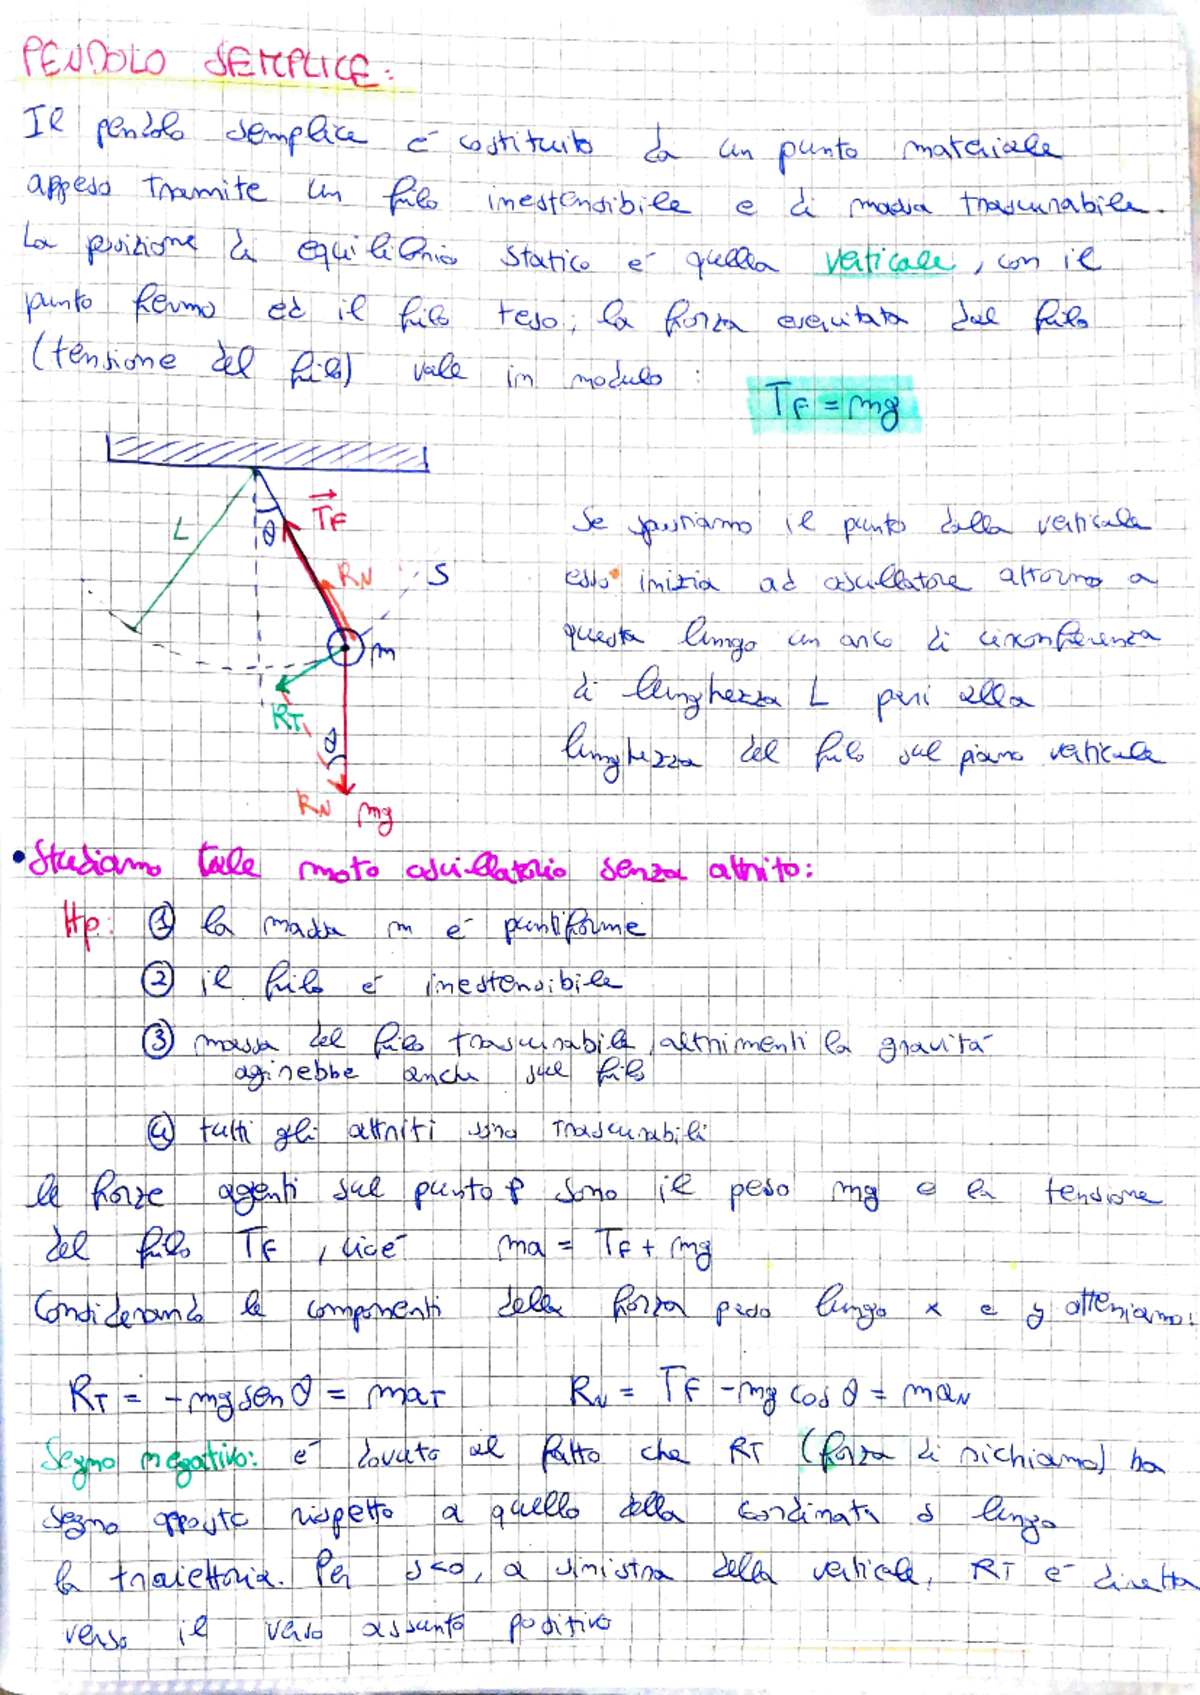 PENDOLO SEMPLICE:
Il pendolo semplice è costituito da un punto materiale
appeso tramite un filo inestensibile e di massa trascurabile.
La posizione di equilibrio statico è quella verticale, con il
punto fermo ed il filo teso; la forza esercitata dal filo
(tensione del filo) vale in modulo:
TF = mg
L
θ
TF
RN
S
m
RT
θ
RN
mg
Se spostiamo il punto dalla verticale
esso inizia ad oscillatore attorno a
questa lungo un arco di circonferenza
di lunghezza L pari alla
lunghezza del filo sul piano verticale
• Studiamo tale moto oscillatorio senza attrito:
Hp: ① la massa m è puntiforme
② il filo è inestensibile
③ massa del filo trascurabile, altrimenti la gravità
agirebbe anche sul filo
④ tutti gli attriti sono trascurabili
le forze agenti sul punto P sono il peso mg e la tensione
del filo TF, cioè ma = TF + mg
Considerando le componenti della forza peso lungo x e y otteniamo:
RT = -mg sen θ = maT RN = TF - mg cos θ = maN
Segno negativo: è dovuto al fatto che RT (forza di richiamo) ha
segno opposto rispetto a quello della cordinata s lungo
la traiettoria. Per s<0, a sinistra della verticale, RT è diretta
verso il verso assunto positivo